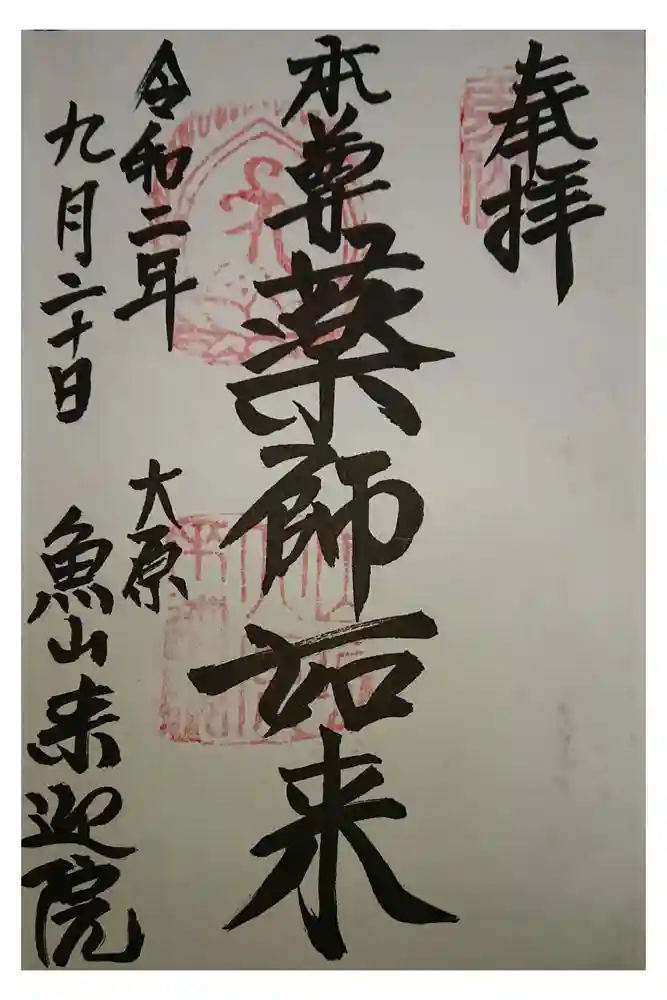 奉拝
本尊薬師如来
令和二年
九月二十日
大原
魚山来迎院